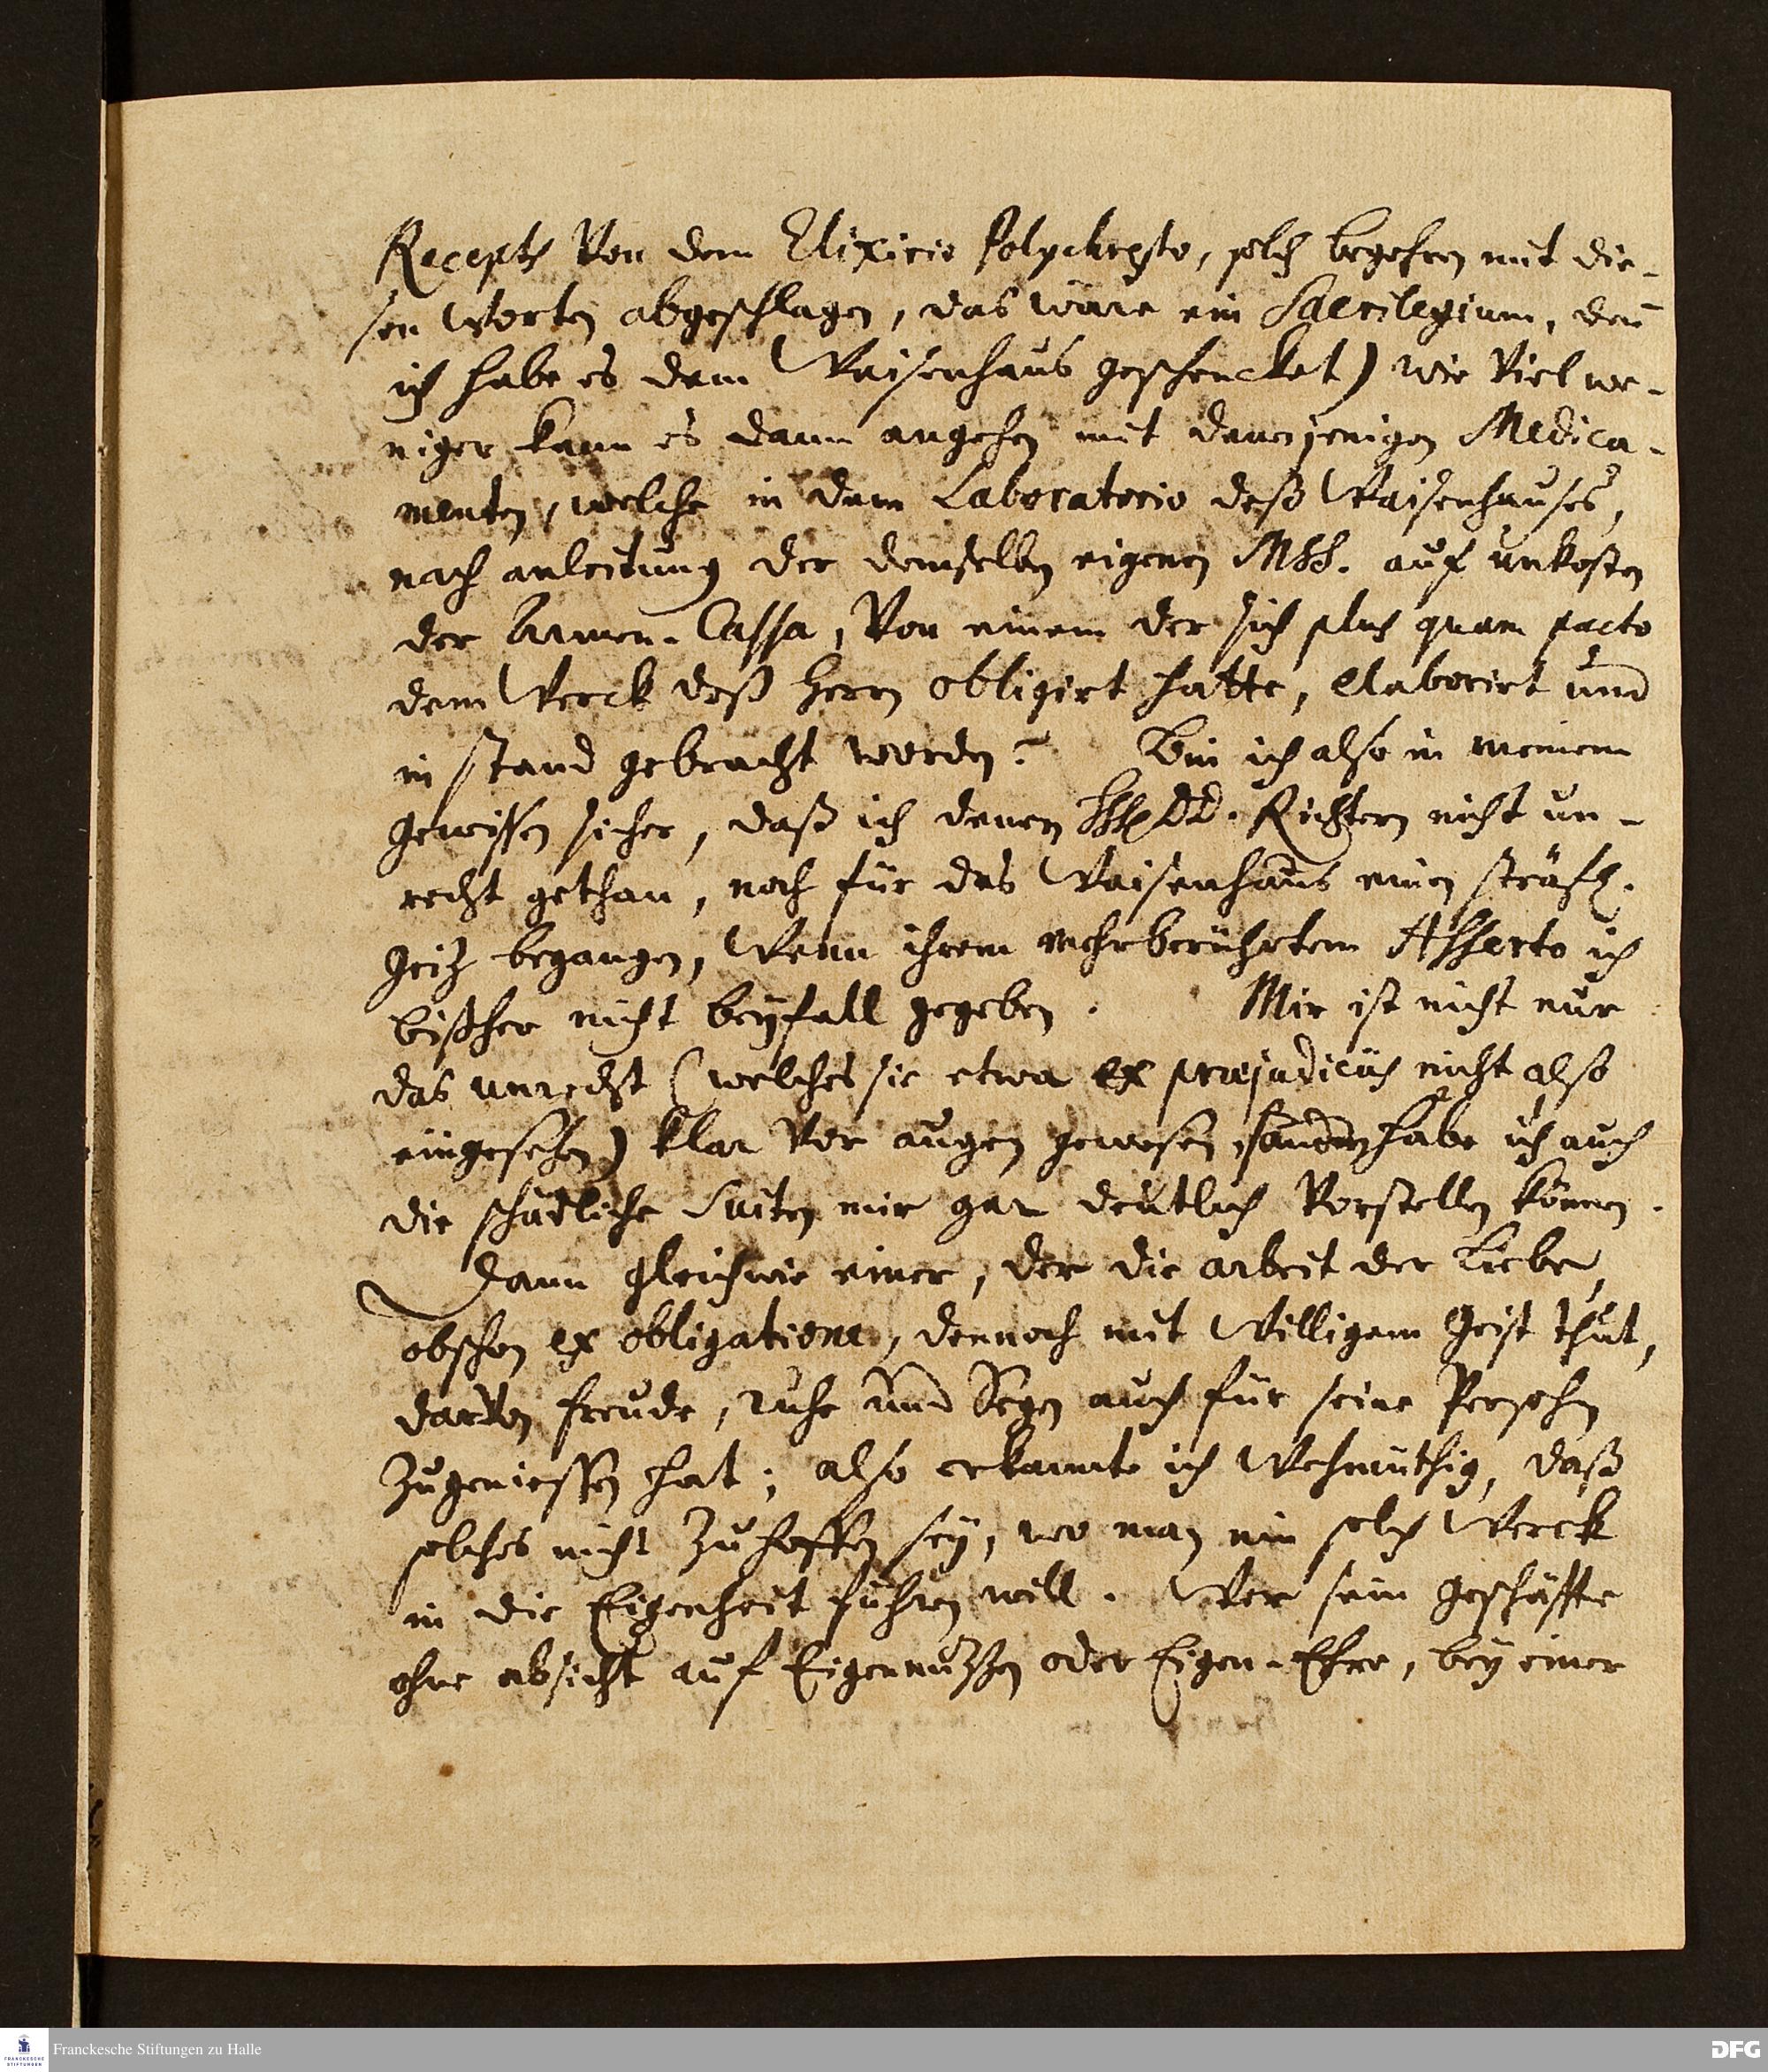 Recepts Von dem Elixirio Polychresto, solch begehren mit die-
sen Worten abgeschlagen, das wäre ein Sacrilegium, den̄
ich habe es dem Waisenhaus geschencket) wie Viel we-
niger kann es dann angehen mit denenjenigen Medica-
menten, welche in dem Laboratorio deß Waisenhauses,
nach anleitung der demselben eigenen MSS. auf unkosten
der Armen-Cassa, Von einem der sich plus quam pacto
dem Werck deß Herrn obligirt hatte, elaborirt und
in stand gebracht worden? Bin ich also in meinem
Gewissen sicher, daß ich denen DD. Richtern nicht un-
recht gethan, noch für das Waisenhaus einen sträfl.
Geitz begangen, Wenn ihrem mehrberührtem Asserto ich
bißher nicht beyfall gegeben. Mir ist nicht nur
das unrecht (welches sie etwa ex præjudiciis nicht also
eingesehen) klar Vor augen gewesen, sondern habe ich auch
die schädliche Suiten mir gar deutlich Vorstellen können.
Dann gleichwie einer, der die arbeit der Liebe,
obschon ex obligatione, dennoch mit Willigem Geist thut,
darvon freude, ruhe und Segen auch für seine Persohn
Zugeniessen hat; also erkannte ich Wehmüthig, daß
solches nicht Zuhoffen sey, wo man ein solch Werck
in die Eigenheit führen will. Wer sein geschäffte
ohne absicht auf Eigennutzen oder Eigen-Ehre, bey einer
Franckesche Stiftungen zu Halle
FRANCKESCHE STIFTUNGEN
DFG